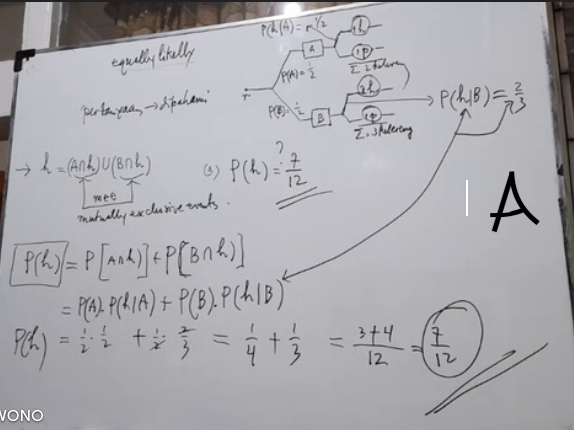 equally likely
pertanyaan → dipahami
P(h|A) = 1/2
1h
A
1p
P(A) = 1/2
Σ = 2 kelereng
P(B) = 1/2
2h
B
1p
Σ = 3 kelereng
P(h|B) = 2/3
→ h = (A∩h) ∪ (B∩h)
mee
mutually exclusive events.
P(h) =? 7/12
A
P(h) = P[A∩h] + P[B∩h]
= P(A). P(h|A) + P(B). P(h|B)
P(h) = 1/2 . 1/2 + 1/2 . 2/3 = 1/4 + 1/3 = 3+4/12 = 7/12
WONO